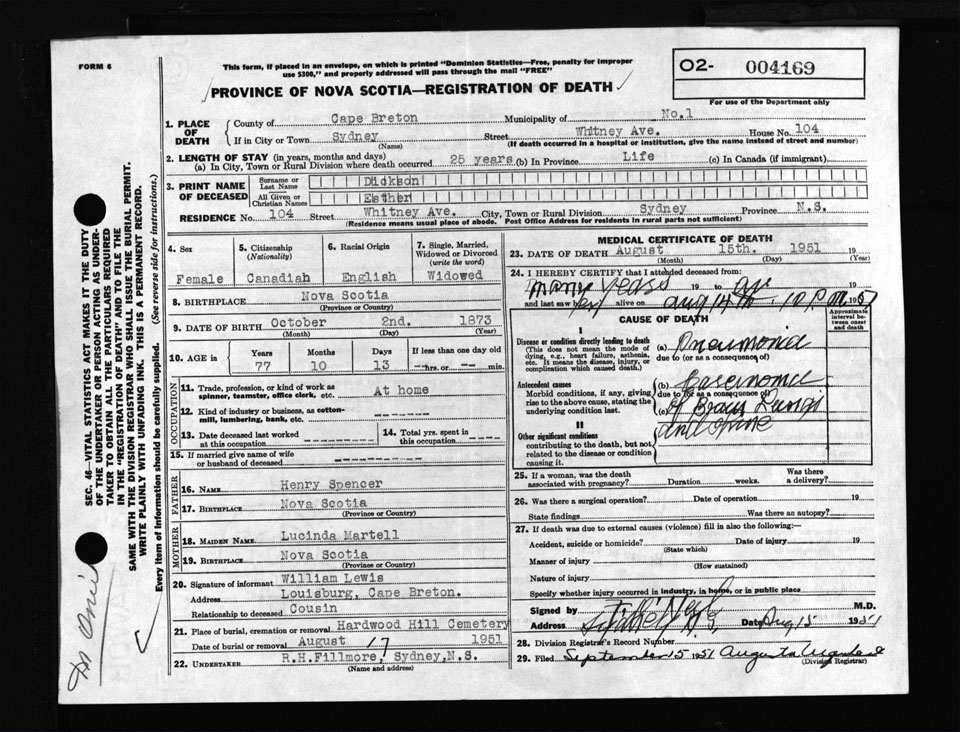 FORM 6
This form, if placed in an envelope, on which is printed "Dominion Statistics—Free, penalty for improper
use $300," and properly addressed will pass through the mail "FREE"
PROVINCE OF NOVA SCOTIA—REGISTRATION OF DEATH
O2- 004169
For use of the Department only
1. PLACE OF DEATH
County of Cape Breton Municipality of No.1
If in City or Town Sydney Street Whitney Ave. House No. 104
(Name) (If death occurred in a hospital or institution, give the name instead of street and number)
2. LENGTH OF STAY (in years, months and days)
(a) In City, Town or Rural Division where death occurred 25 years (b) In Province Life (c) In Canada (if immigrant)
3. PRINT NAME OF DECEASED
Surname or Last Name Dickson
All Given or Christian Names Esther
RESIDENCE No. 104 Street Whitney Ave. City, Town or Rural Division Sydney Province N.S.
(Residence means usual place of abode. Post Office Address for residents in rural parts not sufficient)
4. Sex
Female
5. Citizenship (Nationality)
Canadiah
6. Racial Origin
English
7. Single, Married, Widowed or Divorced (write the word)
Widowed
8. BIRTHPLACE Nova Scotia
(Province or Country)
9. DATE OF BIRTH October 2nd. 1873
(Month) (Day) (Year)
10. AGE in Years Months Days If less than one day old
77 10 13 --hrs. or -- min.
OCCUPATION
11. Trade, profession, or kind of work as spinner, teamster, office clerk, etc. At home
12. Kind of industry or business, as cotton-mill, lumbering, bank, etc. -------
13. Date deceased last worked at this occupation ------- 14. Total yrs. spent in this occupation -----
15. If married give name of wife or husband of deceased --------
FATHER
16. NAME Henry Spencer
17. BIRTHPLACE Nova Scotia
(Province or Country)
MOTHER
18. MAIDEN NAME Lucinda Martell
19. BIRTHPLACE Nova Scotia
(Province or Country)
20. Signature of informant William Lewis
Address Louisburg, Cape Breton.
Relationship to deceased Cousin
21. Place of burial, cremation or removal Hardwood Hill Cemetery
Date of burial or removal August 17 1951
22. UNDERTAKER R.H.Fillmore, Sydney,N.S.
(Name and address)
MEDICAL CERTIFICATE OF DEATH
23. DATE OF DEATH August 15th. 1951 19
(Month) (Day) (Year)
24. I HEREBY CERTIFY that I attended deceased from:
many years 19 to
and last saw her alive on Aug 14 10 P.M. 1951
CAUSE OF DEATH
Approximate interval between onset and death
I
Disease or condition directly leading to death (a) Pneumonia
(This does not mean the mode of dying, e.g., heart failure, asthenia, etc. It means the disease, injury, or complication which caused death.)
due to (or as a consequence of)
Antecedent causes (b)
Morbid conditions, if any, giving rise to the above cause, stating the underlying condition last.
due to (or as a consequence of)
(c) of Lungs
and spine
II
Other significant conditions
contributing to the death, but not related to the disease or condition causing it.
25. If a woman, was the death associated with pregnancy? Duration weeks. Was there a delivery?
26. Was there a surgical operation? Date of operation 19
State findings Was there an autopsy?
27. If death was due to external causes (violence) fill in also the following:—
Accident, suicide or homicide? Date of injury 19
(State which)
Manner of injury
(How sustained)
Nature of injury
Specify whether injury occurred in industry, in home, or in public place
Signed by M.D.
Address Date Aug 15 1951
28. Division Registrar's Record Number
29. Filed September 15 1951 Augusta
(Division Registrar)
SEC. 46—VITAL STATISTICS ACT MAKES IT THE DUTY
OF THE UNDERTAKER OR PERSON ACTING AS UNDER-
TAKER TO OBTAIN ALL THE PARTICULARS REQUIRED
IN THE "REGISTRATION OF DEATH" AND TO FILE THE
SAME WITH THE DIVISION REGISTRAR WHO SHALL ISSUE THE BURIAL PERMIT.
WRITE PLAINLY WITH UNFADING INK. THIS IS A PERMANENT RECORD.
Every item of information should be carefully supplied. (See reverse side for instructions.)